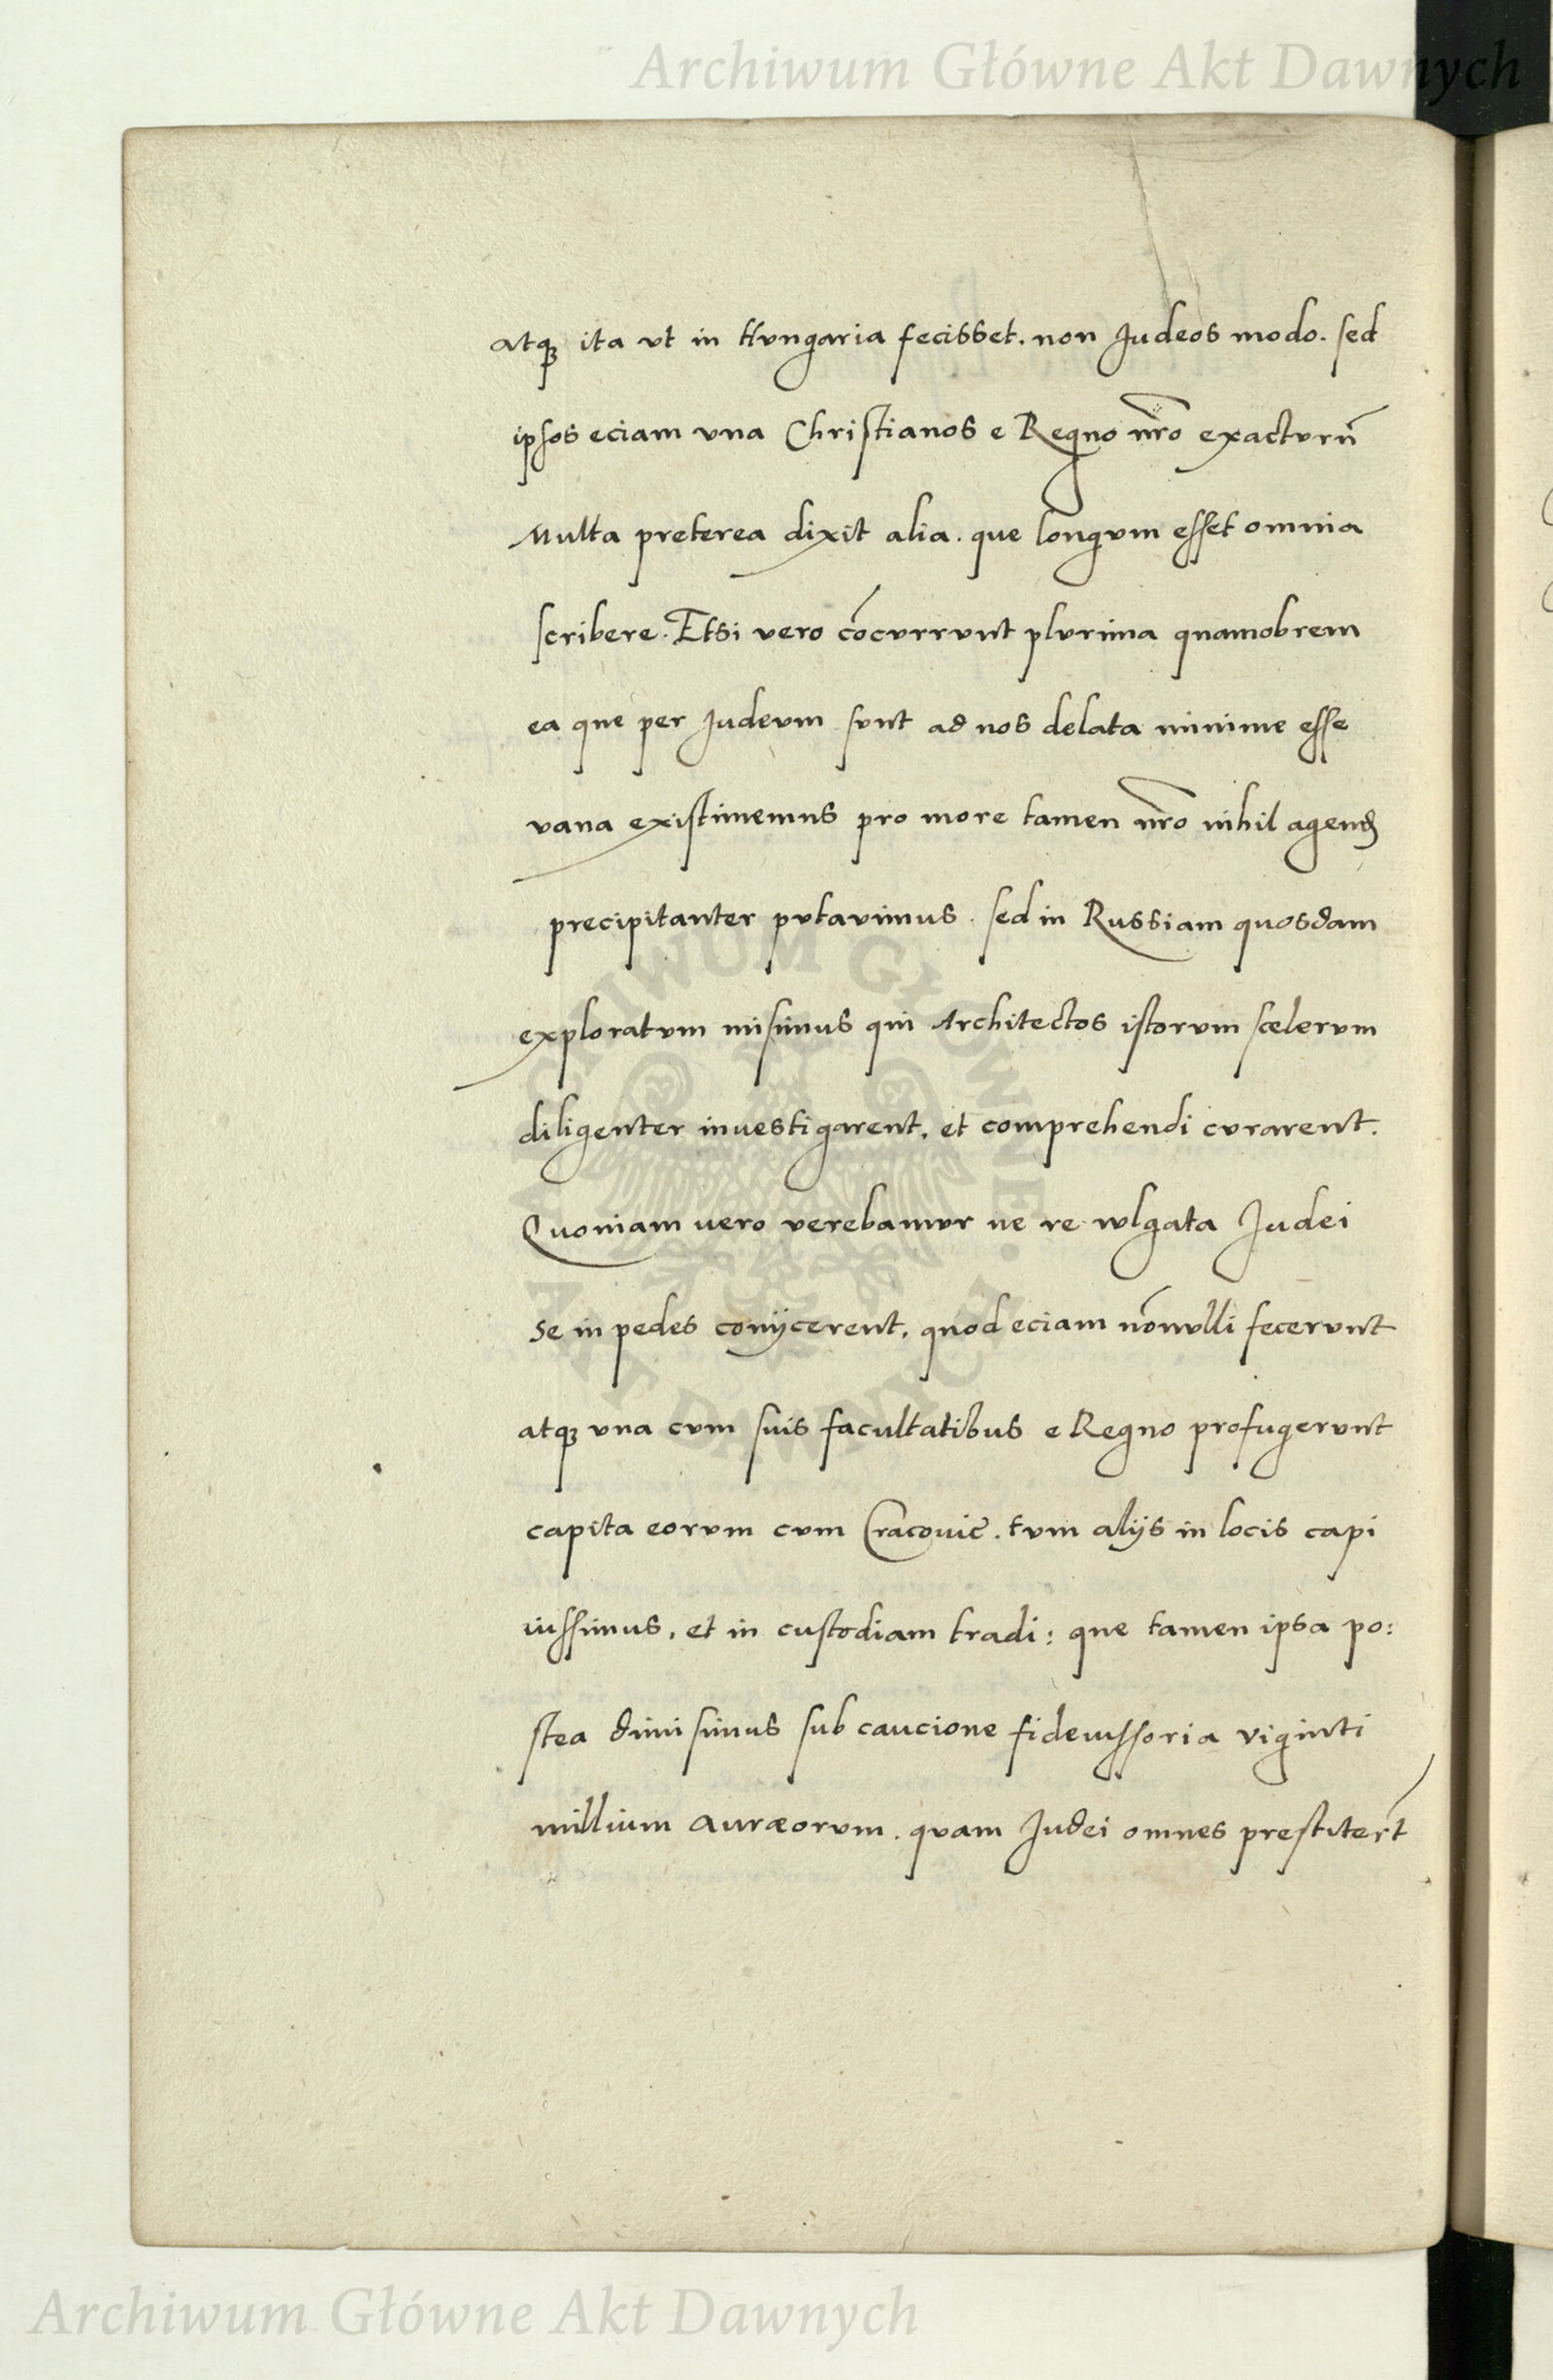 Archiwum Główne Akt Dawnych
atqꝫ ita vt in Hvngaria fecisset. non Judeos modo. sed
ipsos eciam vna Christianos e Regno nr̃o exactvrũ
Multa preterea dixit alia. que longvm esset omnia
scribere. Etsi vero cõcvrrvnt plvrima quamobrem
ea que per Judevm svnt ad nos delata minime esse
vana existimemus pro more tamen nr̃o nihil agendꝫ
precipitanter pvtavimus. sed in Russiam quosdam
exploratvm misimus qui Architectos istorvm scelervm
diligenter investigarent, et comprehendi cvrarent.
Qvoniam vero verebamvr ne re wlgata Judei
se in pedes conijcerent, quod eciam nõnvlli fecervnt
atqꝫ vna cvm suis facultatibus e Regno profugervnt
capita eorvm cvm Cracovie. tvm alijs in locis capi
iussimus, et in custodiam tradi: que tamen ipsa po:
stea dimisimus sub caucione fideiussoria viginti
millium auræorvm. qvam Judei omnes prestiter̃t
ARCHIWUM GŁÓWNE AKT DAWNYCH
Archiwum Główne Akt Dawnych